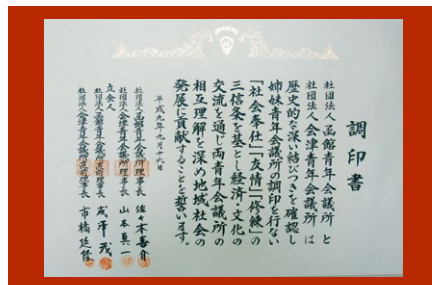 調印書
社団法人函館青年会議所と
社団法人会津青年会議所は
歴史的な深い結びつきを確認し
姉妹青年会議所の調印を行ない
「社会奉仕」「友情」「修練」の
三信条を基とし経済・文化の
交流を通じ両青年会議所の
相互理解を深め地域社会の
発展に貢献することを誓います。
平成九年九月十六日
社団法人函館青年会議所理事長 佐々木喜介
社団法人会津青年会議所理事長 山本真一
立会人
社団法人函館青年会議所直前理事長 成澤茂
社団法人会津青年会議所直前理事長 市橋廷隆